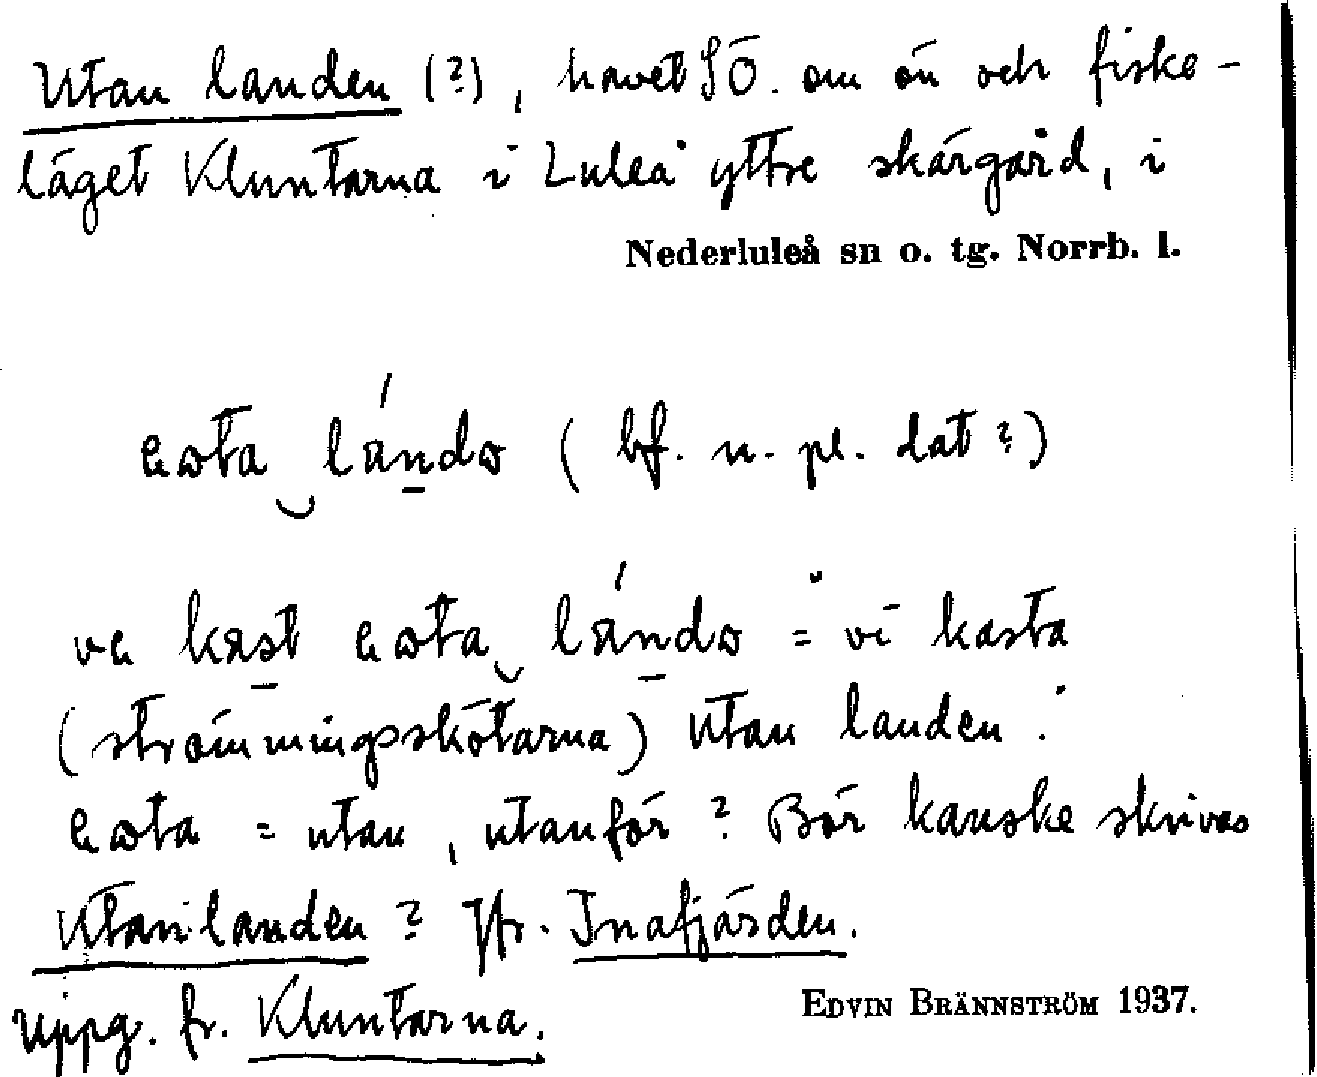 Utan landen (?), havet SÖ. om ön och fiske-
läget Kluntarna i Luleå yttre skärgård, i
Nederluleå sn o. tg. Norrb. l.
(bf. n. pl. dat?)
= vi kasta
(strömmingsskötarna) utan landen.
= utan, utanför? Bör kanske skrivas
Utanlanden? Jfr. Inafjärden.
Uppg. fr. Kluntarna.
EDVIN BRÄNNSTRÖM 1937.